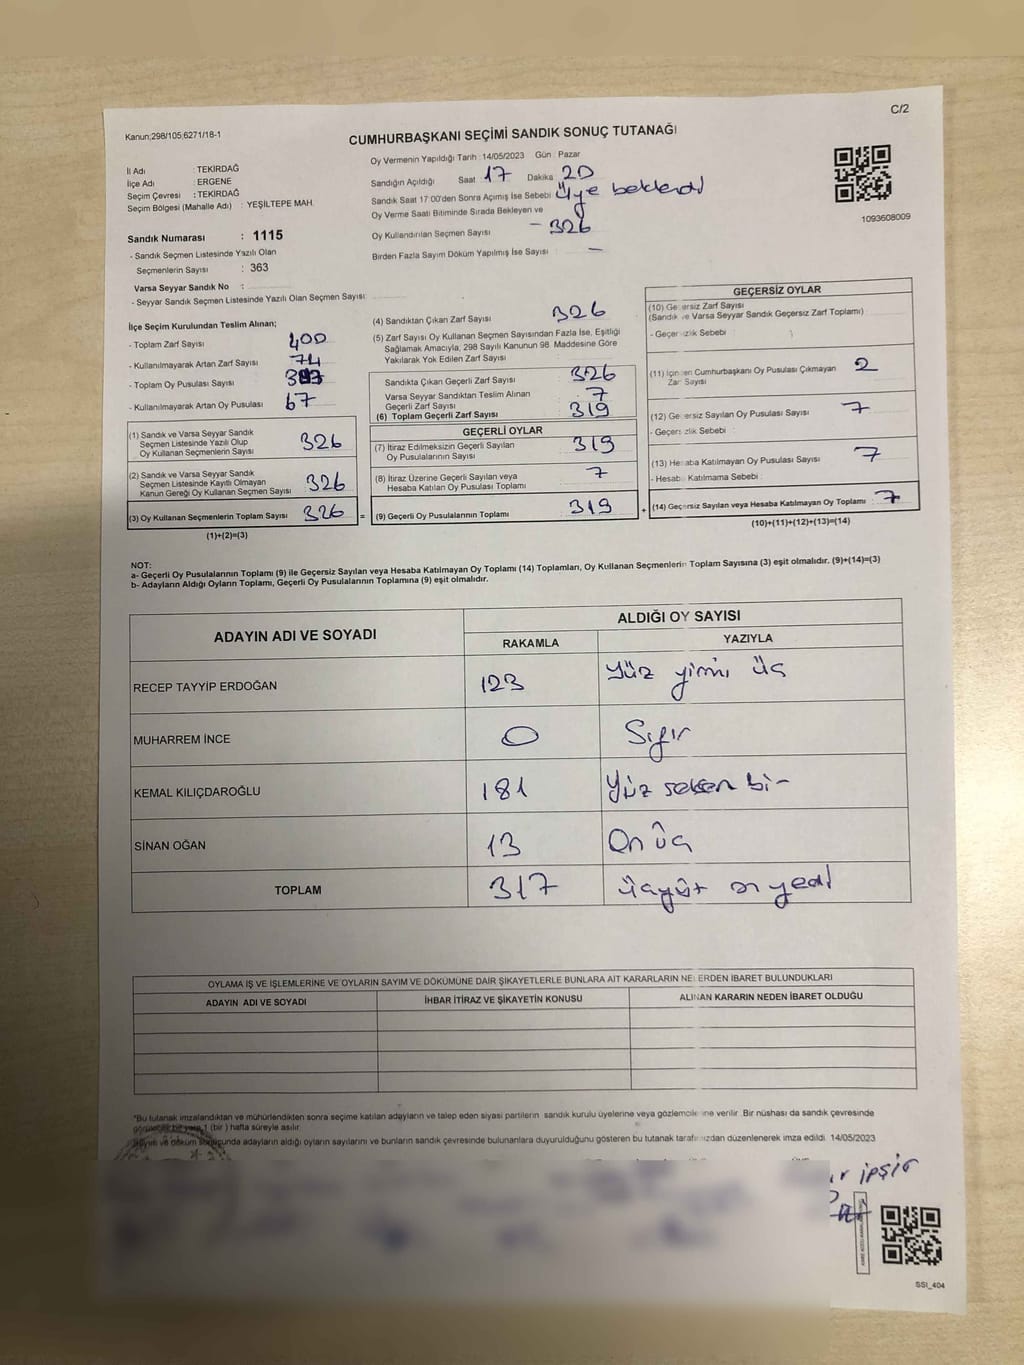 C/2
Kanun:298/105,6271/18-1
CUMHURBAŞKANI SEÇİMİ SANDIK SONUÇ TUTANAĞI
İl Adı : TEKİRDAĞ
İlçe Adı : ERGENE
Seçim Çevresi : TEKİRDAĞ
Seçim Bölgesi (Mahalle Adı) : YEŞİLTEPE MAH.
Oy Vermenin Yapıldığı Tarih : 14/05/2023 Gün : Pazar
Sandığın Açıldığı Saat 17 Dakika 20
Sandık Saat 17:00'den Sonra Açımış İse Sebebi Üye beklendi
Oy Verme Saati Bitiminde Sırada Bekleyen ve
Oy Kullandırılan Seçmen Sayısı - 326
Birden Fazla Sayım Döküm Yapılmış İse Sayısı : -
1093608009
Sandık Numarası : 1115
- Sandık Seçmen Listesinde Yazılı Olan
Seçmenlerin Sayısı : 363
Varsa Seyyar Sandık No :
- Seyyar Sandık Seçmen Listesinde Yazılı Olan Seçmen Sayısı:
İlçe Seçim Kurulundan Teslim Alınan;
- Toplam Zarf Sayısı : 400
- Kullanılmayarak Artan Zarf Sayısı : 74
- Toplam Oy Pusulası Sayısı :
- Kullanılmayarak Artan Oy Pusulası : 67
(1) Sandık ve Varsa Seyyar Sandık
Seçmen Listesinde Yazılı Olup
Oy Kullanan Seçmenlerin Sayısı 326
(2) Sandık ve Varsa Seyyar Sandık
Seçmen Listesinde Kayıtlı Olmayan
Kanun Gereği Oy Kullanan Seçmen Sayısı 326
(3) Oy Kullanan Seçmenlerin Toplam Sayısı 326 =
(1)+(2)=(3)
(4) Sandıktan Çıkan Zarf Sayısı 326
(5) Zarf Sayısı Oy Kullanan Seçmen Sayısından Fazla İse, Eşitliği
Sağlamak Amacıyla, 298 Sayılı Kanunun 98. Maddesine Göre
Yakılarak Yok Edilen Zarf Sayısı
Sandıkta Çıkan Geçerli Zarf Sayısı 326
Varsa Seyyar Sandıktan Teslim Alınan
Geçerli Zarf Sayısı 7
(6) Toplam Geçerli Zarf Sayısı 319
GEÇERLİ OYLAR
(7) İtiraz Edilmeksizin Geçerli Sayılan
Oy Pusulalarının Sayısı 319
(8) İtiraz Üzerine Geçerli Sayılan veya
Hesaba Katılan Oy Pusulası Toplamı 7
(9) Geçerli Oy Pusulalarının Toplamı 319 +
GEÇERSİZ OYLAR
(10) Geçersiz Zarf Sayısı
(Sandık ve Varsa Seyyar Sandık Geçersiz Zarf Toplamı)
- Geçersizlik Sebebi :
(11) İçinden Cumhurbaşkanı Oy Pusulası Çıkmayan
Zarf Sayısı 2
(12) Geçersiz Sayılan Oy Pusulası Sayısı 7
- Geçersizlik Sebebi :
(13) Hesaba Katılmayan Oy Pusulası Sayısı 7
- Hesaba Katılmama Sebebi :
(14) Geçersiz Sayılan veya Hesaba Katılmayan Oy Toplamı 7
(10)+(11)+(12)+(13)=(14)
NOT:
a- Geçerli Oy Pusulalarının Toplamı (9) ile Geçersiz Sayılan veya Hesaba Katılmayan Oy Toplamı (14) Toplamları, Oy Kullanan Seçmenlerin Toplam Sayısına (3) eşit olmalıdır. (9)+(14)=(3)
b- Adayların Aldığı Oyların Toplamı, Geçerli Oy Pusulalarının Toplamına (9) eşit olmalıdır.
ADAYIN ADI VE SOYADI ALDIĞI OY SAYISI
RAKAMLA YAZIYLA
RECEP TAYYİP ERDOĞAN 123 Yüz yirmi üç
MUHARREM İNCE 0 Sıfır
KEMAL KILIÇDAROĞLU 181 Yüz seksen bir
SİNAN OĞAN 13 On üç
TOPLAM 317 üçyüz on yedi
OYLAMA İŞ VE İŞLEMLERİNE VE OYLARIN SAYIM VE DÖKÜMÜNE DAİR ŞİKAYETLERLE BUNLARA AİT KARARLARIN NELERDEN İBARET BULUNDUKLARI
ADAYIN ADI VE SOYADI İHBAR İTİRAZ VE ŞİKAYETİN KONUSU ALINAN KARARIN NEDEN İBARET OLDUĞU
*Bu tutanak imzalandıktan ve mühürlendikten sonra seçime katılan adayların ve talep eden siyasi partilerin sandık kurulu üyelerine veya gözlemcilerine verilir. Bir nüshası da sandık çevresinde
görülecek bir yere 1 (bir) hafta süreyle asılır.
Sayım ve döküm sonucunda adayların aldığı oyların sayılarını ve bunların sandık çevresinde bulunanlara duyurulduğunu gösteren bu tutanak tarafımızdan düzenlenerek imza edildi. 14/05/2023
ipşir
SSI_404